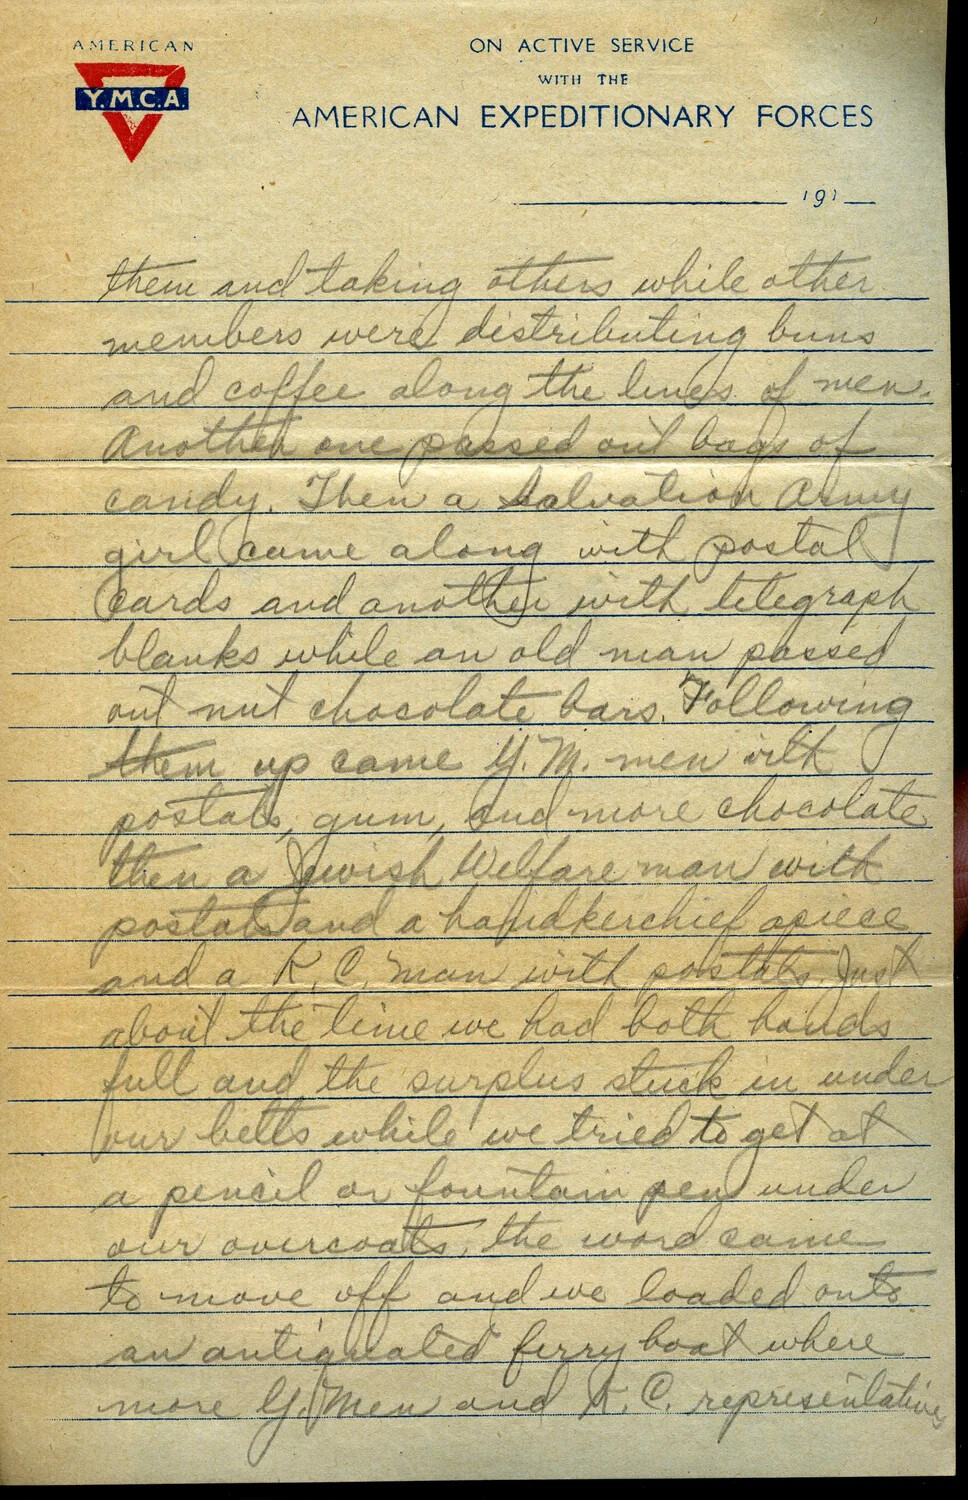 AMERICAN
Y.M.C.A.
ON ACTIVE SERVICE
WITH THE
AMERICAN EXPEDITIONARY FORCES
191
them and taking others while other
members were distributing buns
and coffee along the lines of men.
Another one passed out bags of
candy. Then a Salvation Army
girl came along with postal
cards and another with telegraph
blanks while an old man passed
out nut chocolate bars. Following
them up came Y.M. men with
postals, gum, and more chocolate
then a Jewish Welfare man with
postals and a handkerchief apiece
and a K.C. man with postals. Just
about the time we had both hands
full and the surplus stuck in under
our belts while we tried to get at
a pencil or fountain pen under
our overcoats, the word came
to move off and we loaded onto
an antiquated ferry boat where
more Y. Men and K.C. representatives